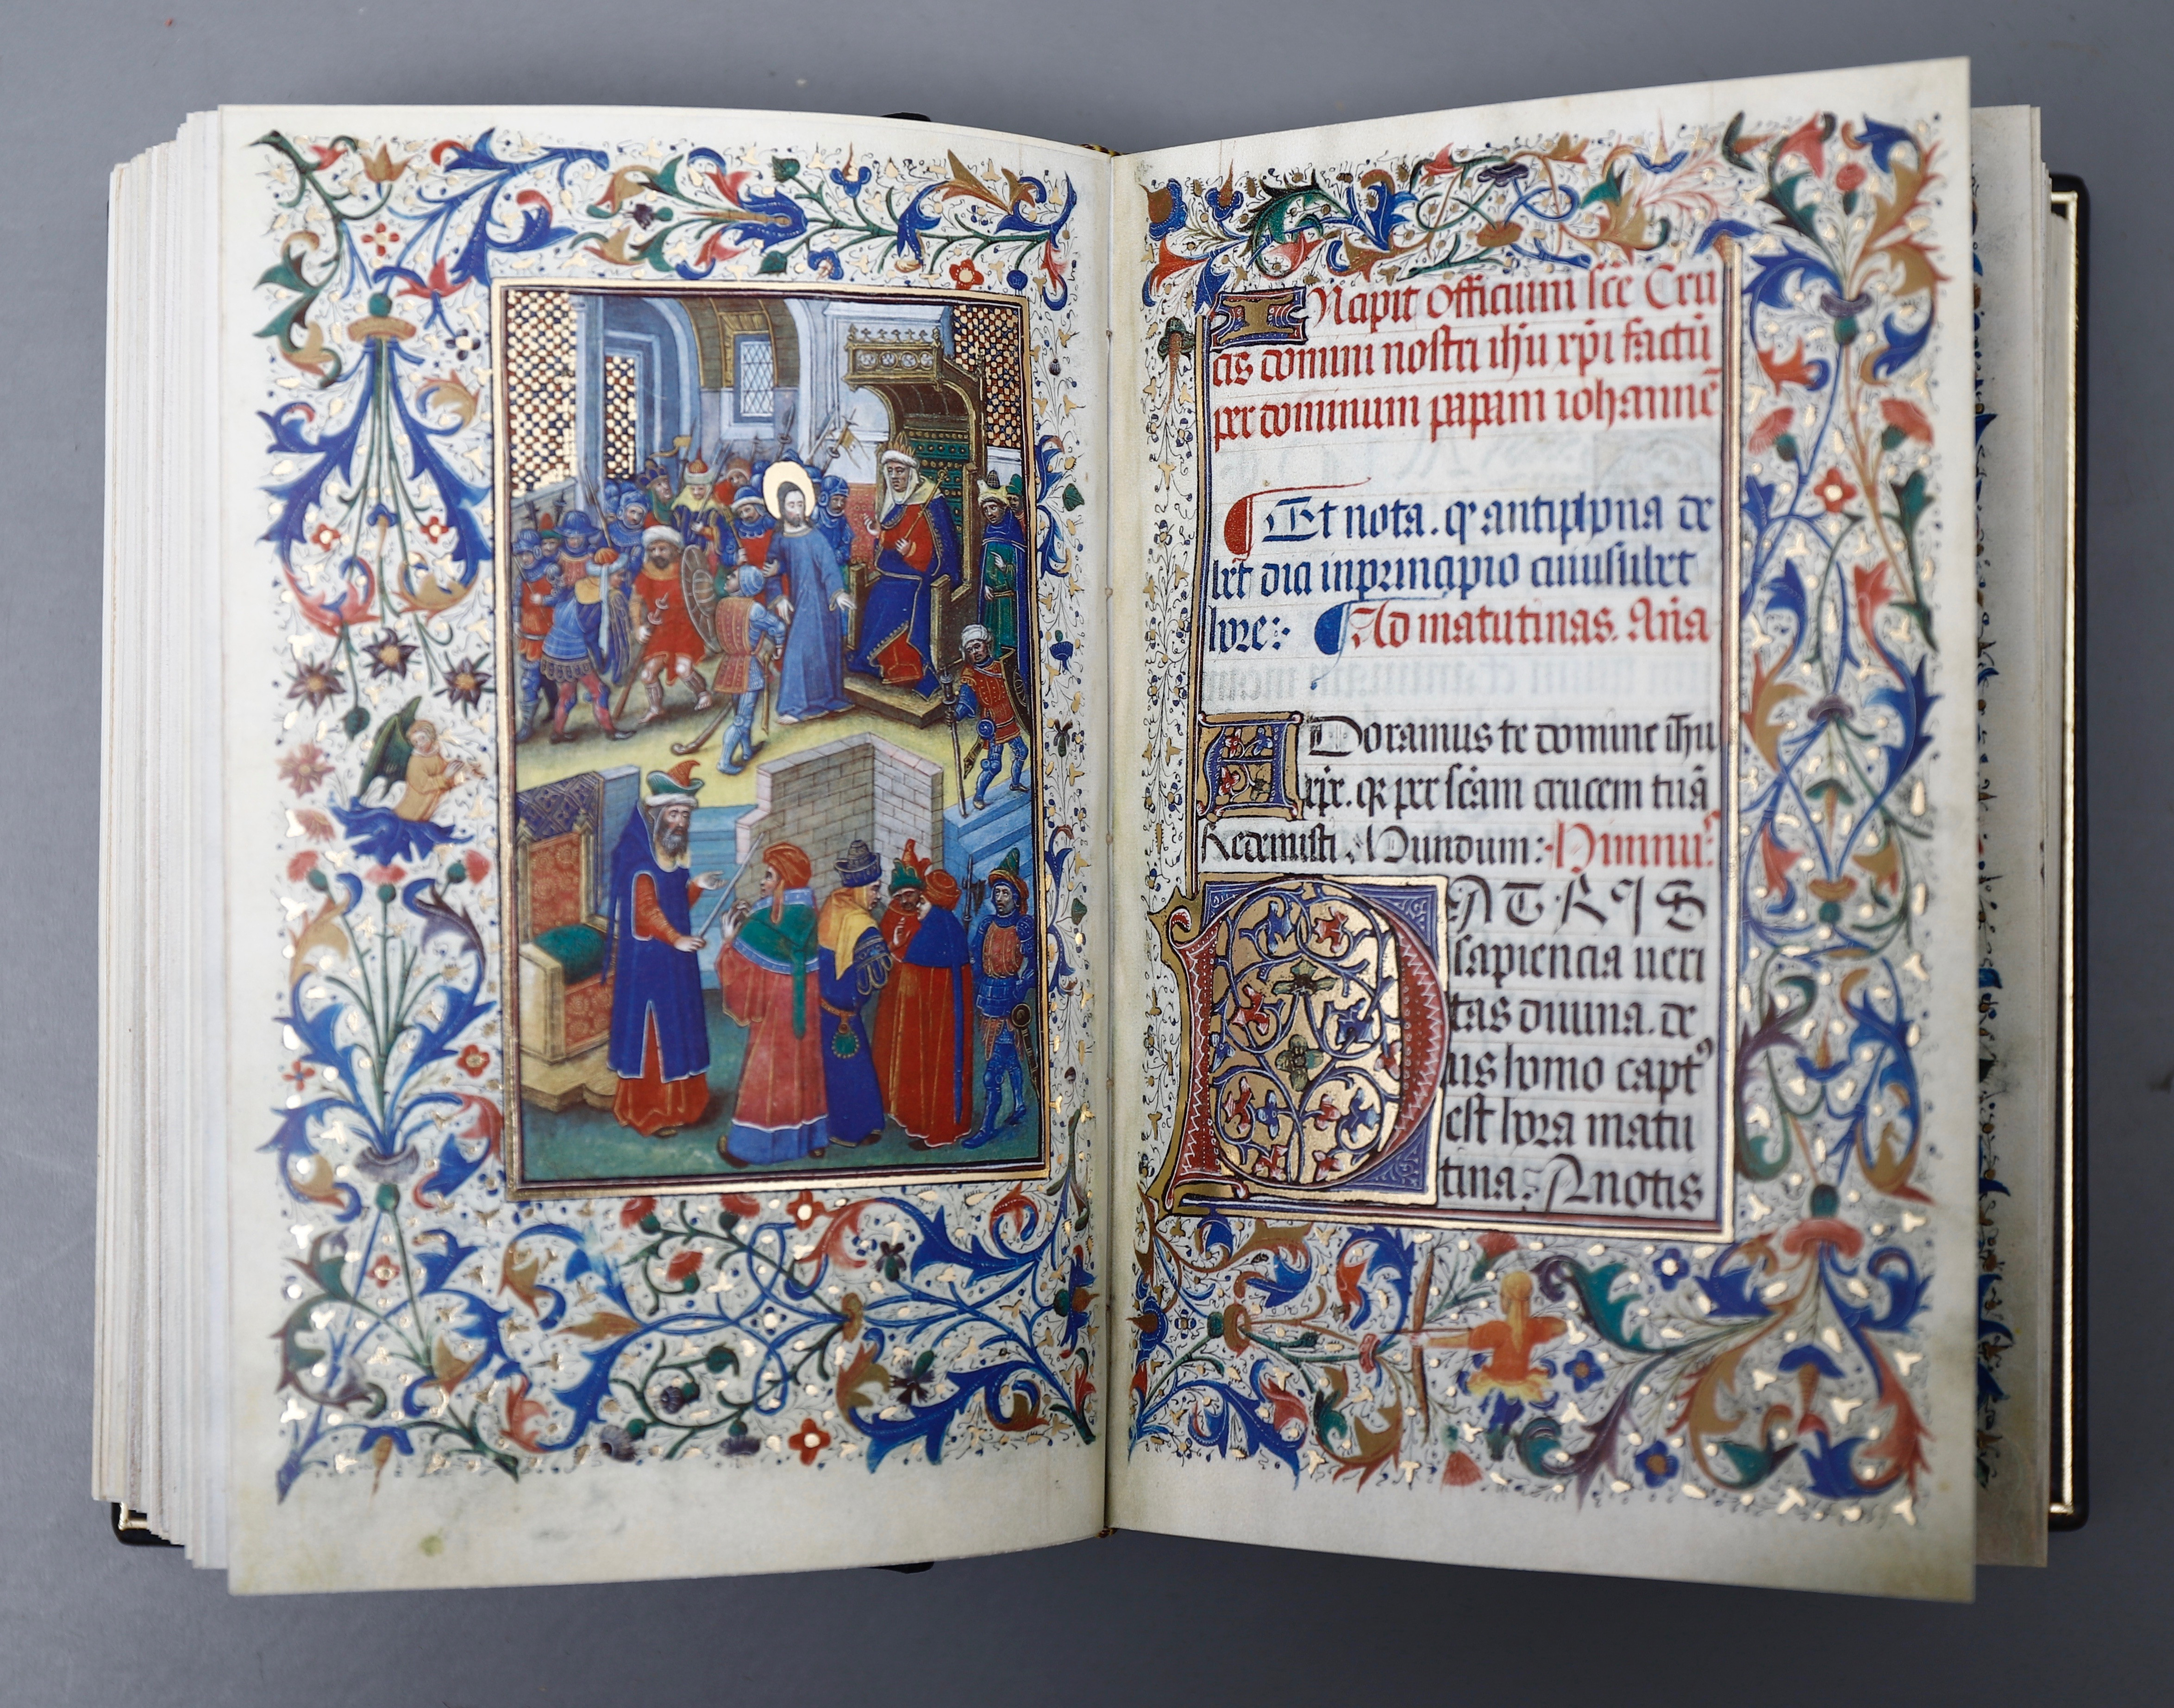 INcipit officium sc̄e Cru
cis domini nostri ih̄u xp̄i factū
per dominum papam iohannē
Et nota. qͥ antiphona de
bet dici inprincipio cuiuslibet
hore: Ad matutinas. Añā
ADoramus te domine ih̄u
xp̄e. qꝛ per sc̄am crucem tuā
Redemisti Mundum: Himnus
PATRIS
sapiencia ueri
tas diuina. de
us homo captꝰ
est hora matu
tina. A notis